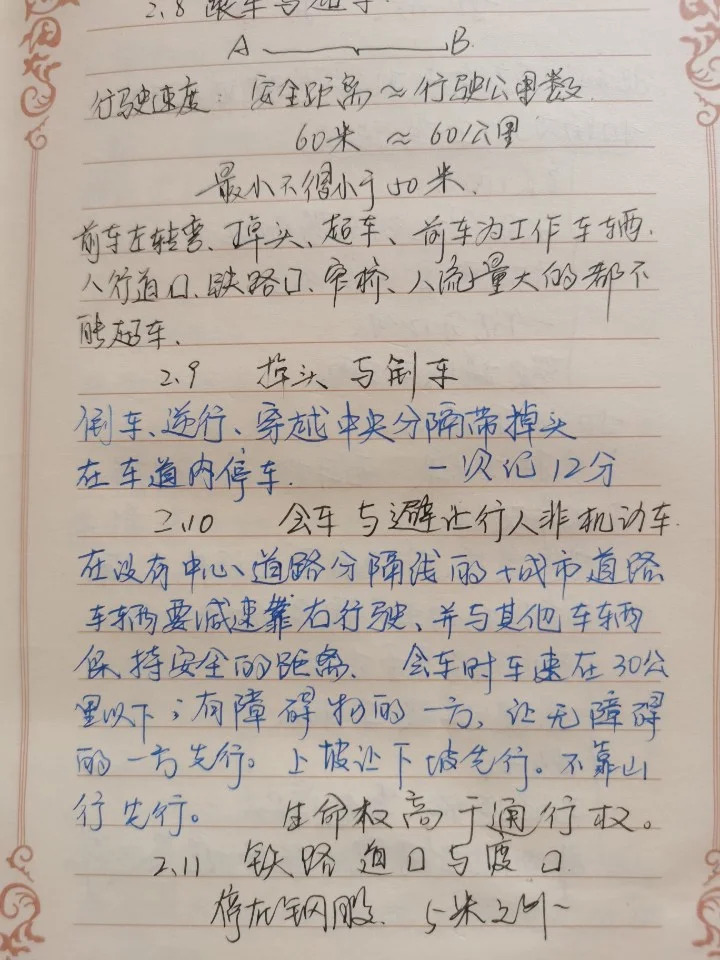 2.8 跟车与超车.
A B
行驶速度: 安全距离≈行驶公里数.
60米 ≈ 60公里
最小不得小于50米.
前车左转弯、掉头、超车、前车为工作车辆.
人行道口、铁路口、窄桥、人流量大的都不
能超车.
2.9 掉头与倒车
倒车、逆行、穿越中央分隔带掉头
在车道内停车. 一次记12分
2.10 会车与避让行人非机动车.
在没有中心道路分隔线的城市道路
车辆要减速靠右行驶、并与其他车辆
保持安全的距离. 会车时车速在30公
里以下;有障碍物的一方,让无障碍
的一方先行。上坡让下坡先行。不靠山
行先行。 生命权高于通行权。
2.11 铁路道口与渡口
停在钢股. 5米之外